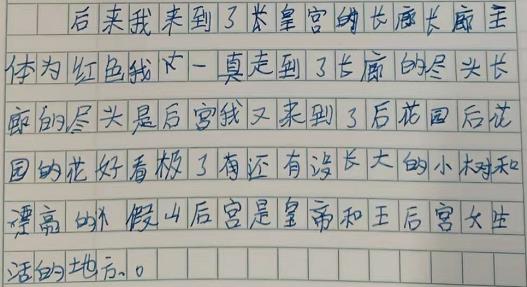 后来我来到了长皇宫的长廊长廊主
体为红色我又一真走到了长廊的尽头长
廊的尽头是后宫我又来到了后花园后花
园的花好看极了有还有没长大的小树和
漂亮的假山后宫是皇帝和王后宫女生
活的地方。